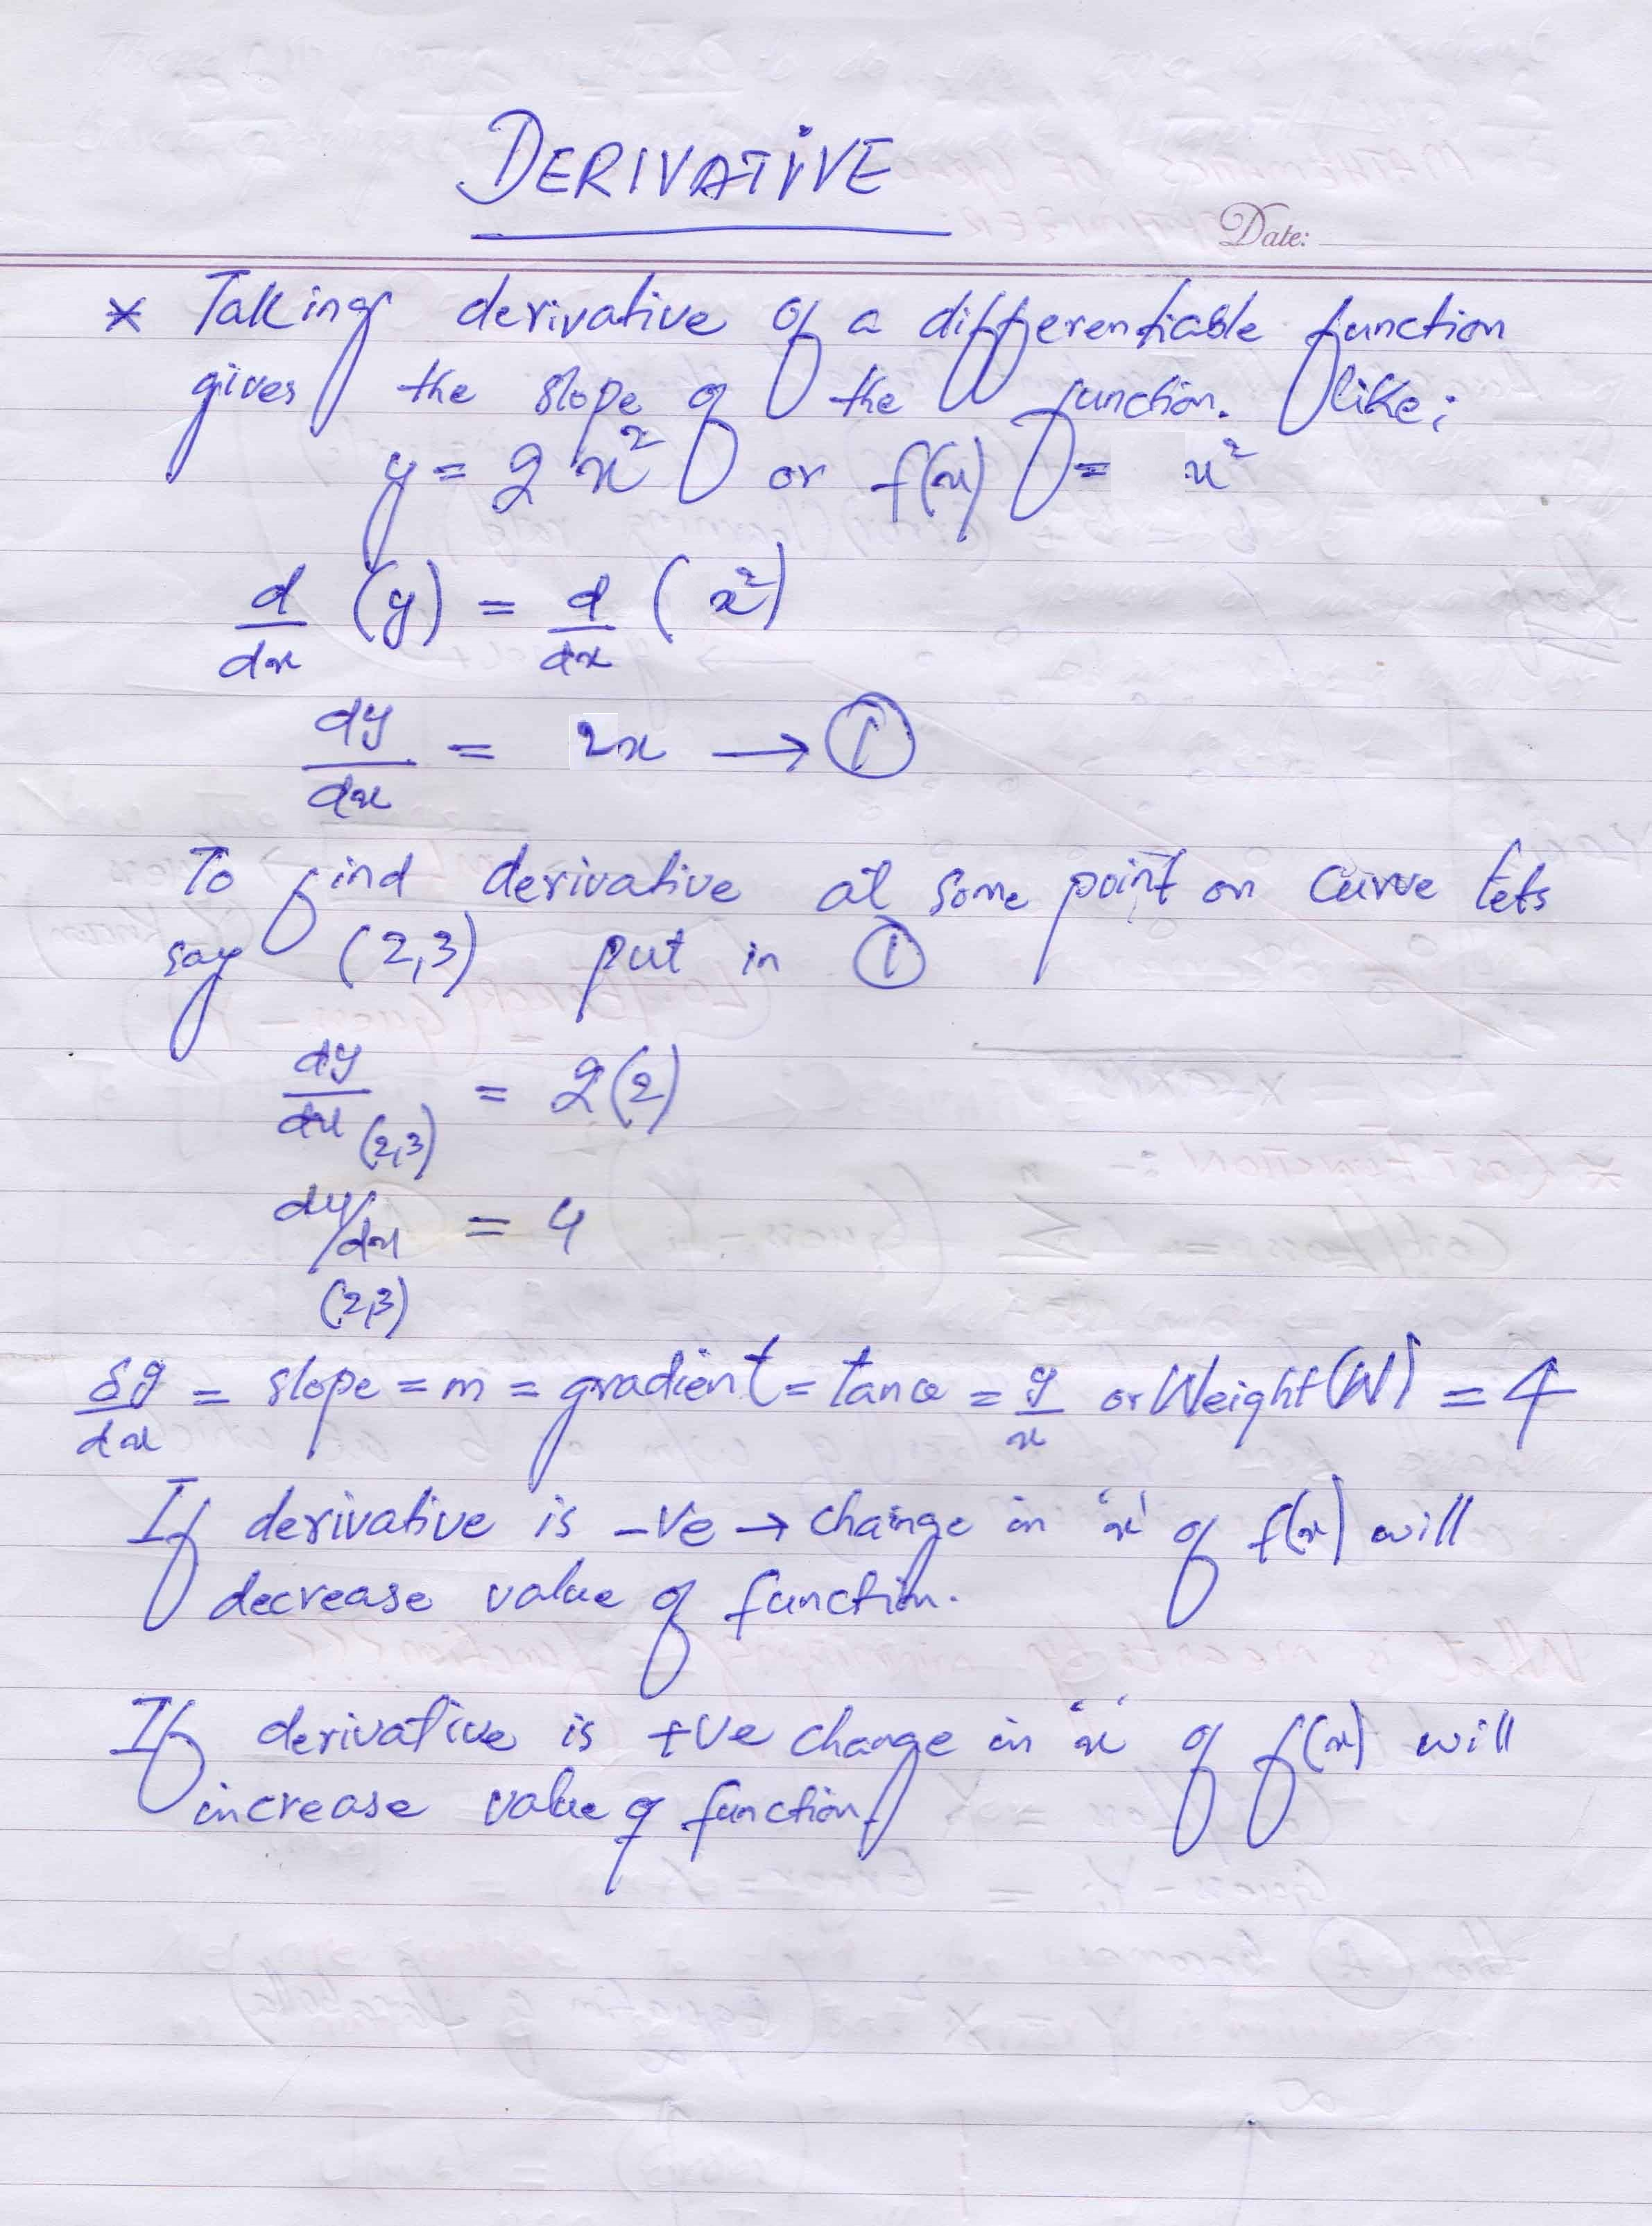 DERIVATIVE
Date:
* Taking derivative of a differentiable function
gives the slope of the function. like;
y = 2 x² or f(x) = x²
d/dx (y) = d/dx (x²)
dy/dx = 2x → ①
To find derivative at some point on curve lets
say (2,3) put in ①
dy/dx (2,3) = 2(2)
dy/dx = 4
(2,3)
δy/dx = slope = m = gradient = tanα = y/x or Weight(W) = 4
If derivative is -ve → change in 'x' of f(x) will
decrease value of function.
If derivative is +ve change in 'x' of f(x) will
increase value of function